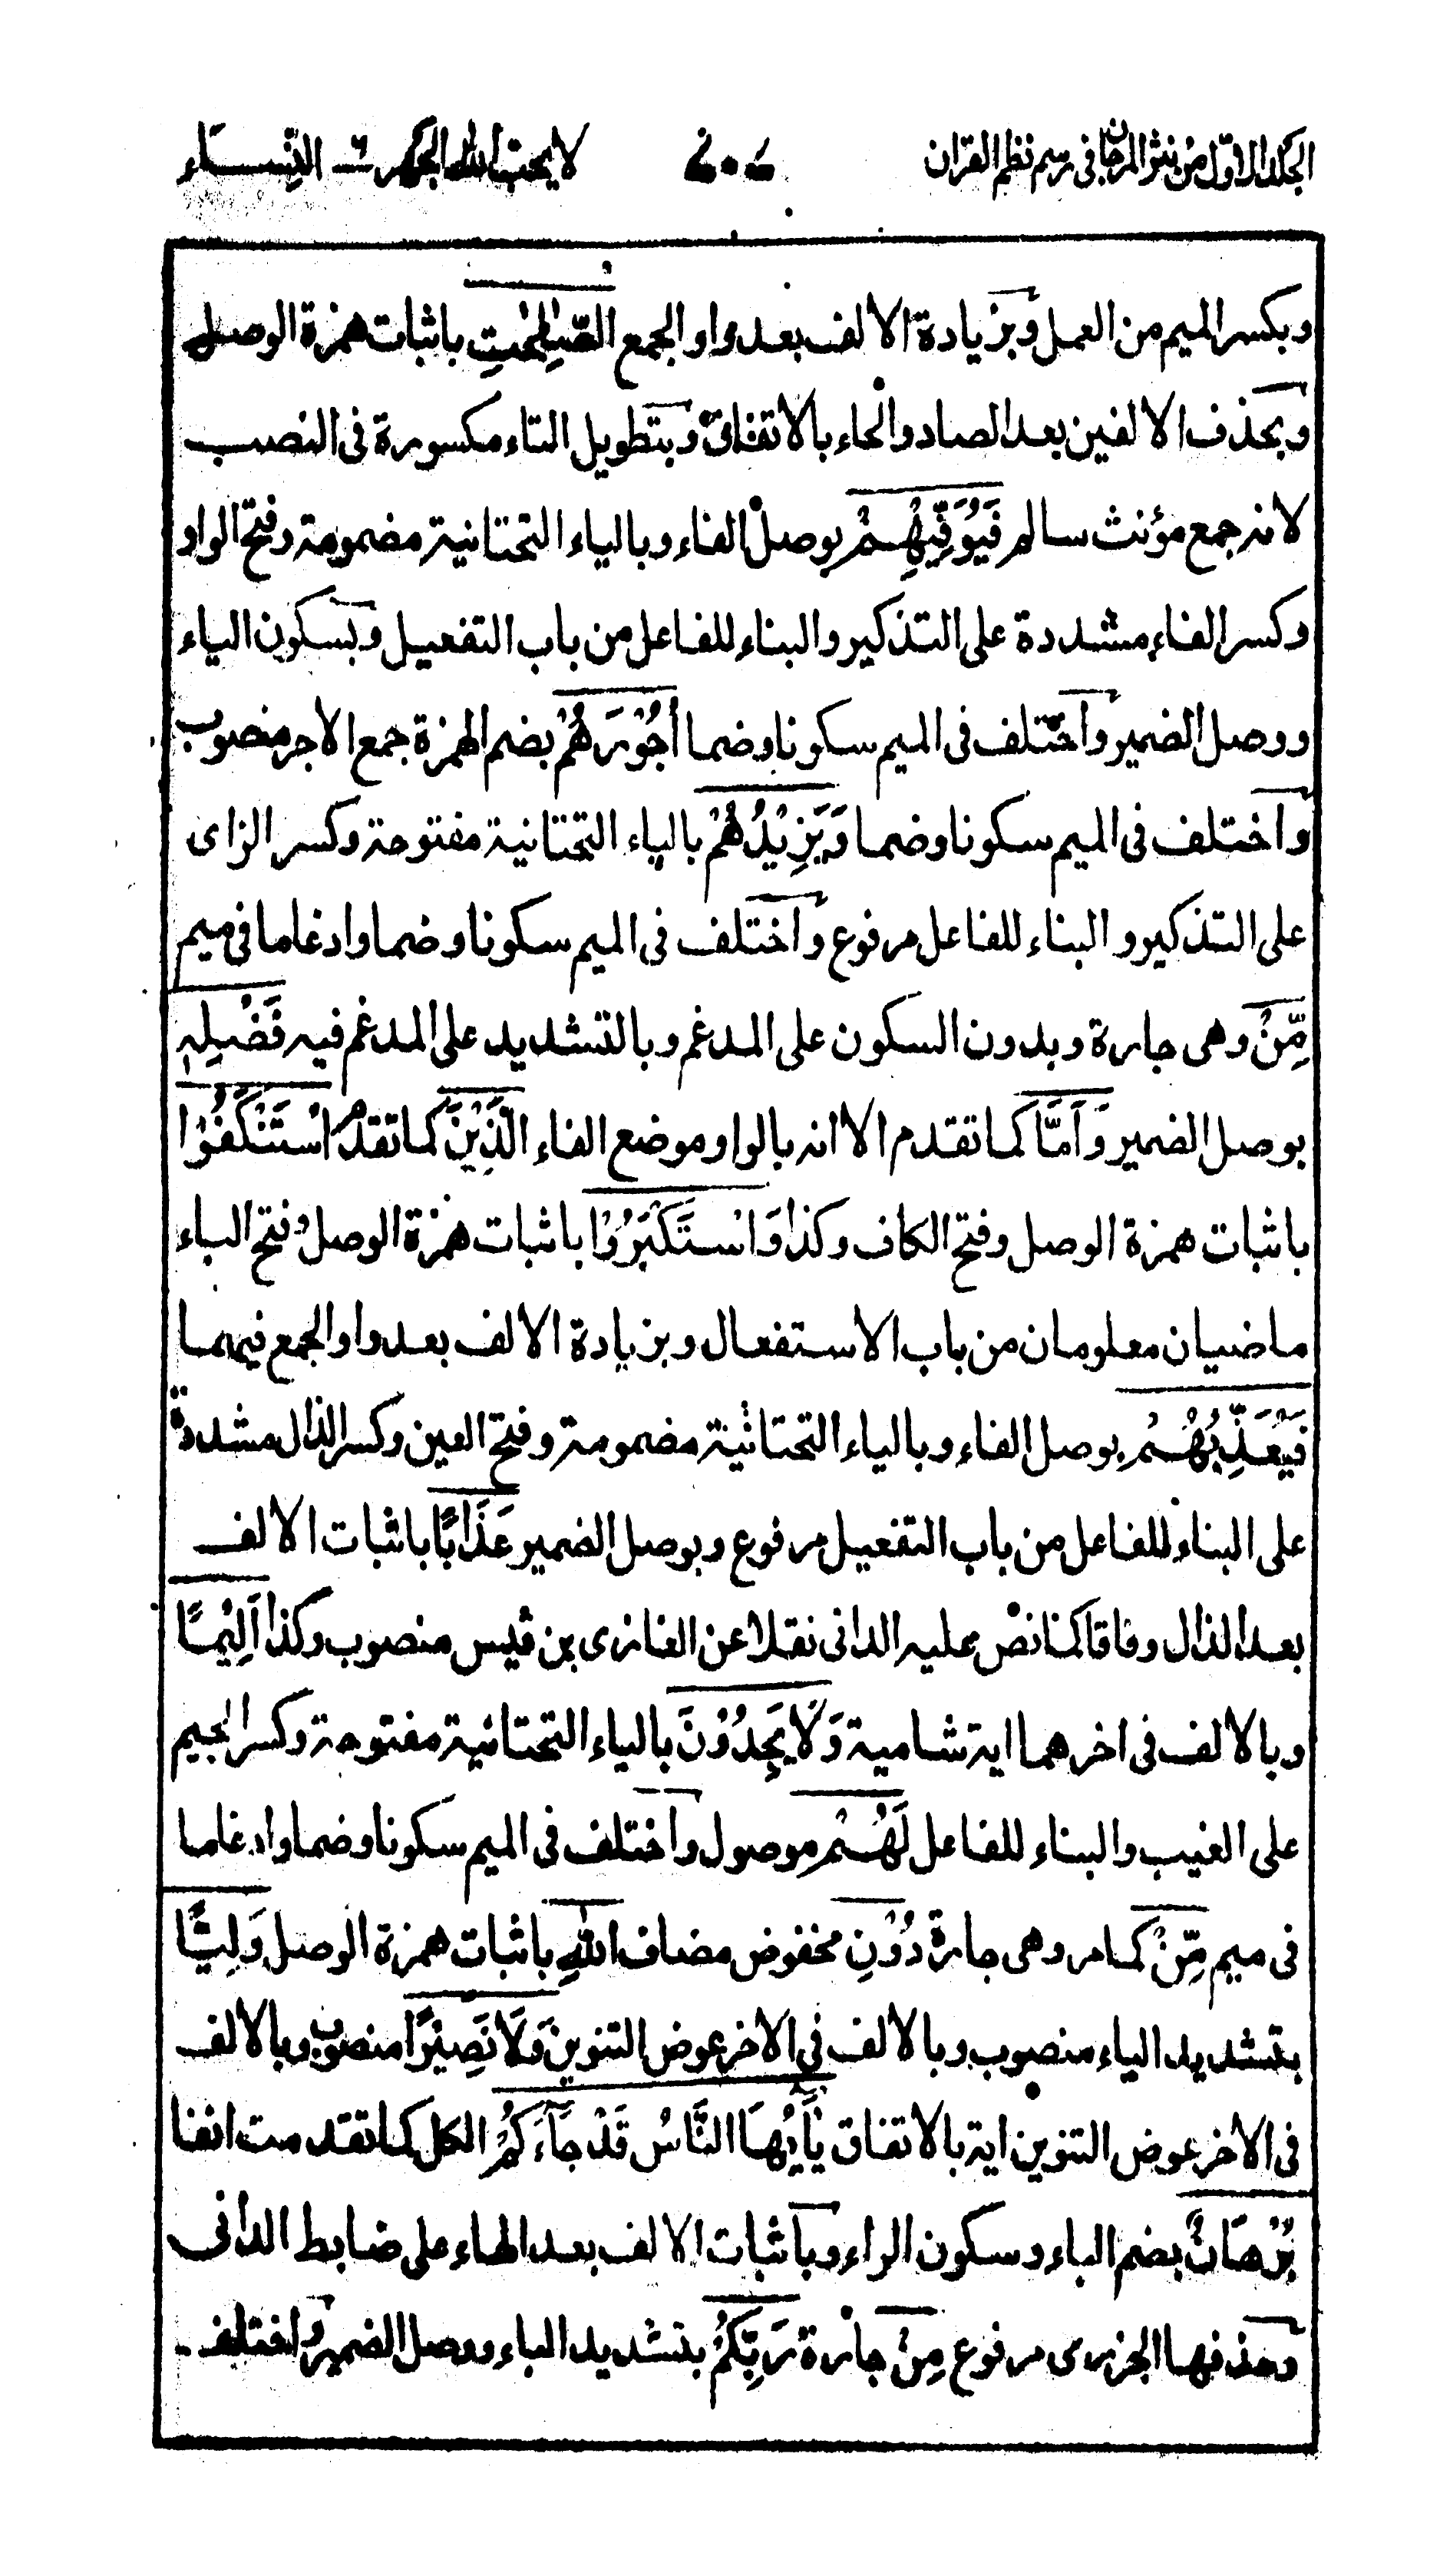 الجلد الاول من نثر المرجان فى رسم نظم القران
لا يحب الله الجهر ٦ النساء
وبكسر الميم من العمل وبزيادة الالف بعد واو الجمع الصّٰلِحٰتِ باثبات همزة الوصل
وبحذف الالفين بعد الصاد والحاء بالاتفاق وبتطويل التاء مكسورة فى النصب
لانه جمع مؤنث سالم فَيُوَفِّيْهِمْ بوصل الفاء وبالياء التحتانية مضمومة وفتح الواو
وكسر الفاء مشددة على التذكير والبناء للفاعل من باب التفعيل وبسكون الياء
ووصل الضمير واختلف فى الميم سكونا وضما اُجُوْرَهُمْ بضم الهمزة جمع الاجر منصوب
واختلف فى الميم سكونا وضما وَيَزِيْدُهُمْ بالياء التحتانية مفتوحة وكسر الزاى
على التذكير والبناء للفاعل مرفوع واختلف فى الميم سكونا وضما وادغاما فى ميم
مِّنْ وهى جارة وبدون السكون على المدغم وبالتشديد على المدغم فيه فَضْلِهٖ
بوصل الضمير وَاَمَّا كما تقدم الا انه بالواو موضع الفاء الَّذِيْنَ كما تقدم اسْتَنْكَفُوْا
باثبات همزة الوصل وفتح الكاف وكذا وَاسْتَكْبَرُوْا باثبات همزة الوصل وفتح الباء
ماضيان معلومان من باب الاستفعال وبزيادة الالف بعد واو الجمع فيهما
فَيُعَذِّبُهُمْ بوصل الفاء وبالياء التحتانية مضمومة وفتح العين وكسر الذال مشددة
على البناء للفاعل من باب التفعيل مرفوع وبوصل الضمير عَذَابًا باثبات الالف
بعد الذال وفاقا كما نص عليه الدانى نقلا عن الغازى بن قيس منصوب وكذا اَلِيْمًا
وبالالف فى اخرهما اية شامية وَلَا يَجِدُوْنَ بالياء التحتانية مفتوحة وكسر الجيم
على الغيب والبناء للفاعل لَهُمْ موصول واختلف فى الميم سكونا وضما وادغاما
فى ميم مِّنْ كما مر وهى جارة دُوْنِ مخفوض مضاف اللهِ باثبات همزة الوصل وَلِيًّا
بتشديد الياء منصوب وبالالف فى الاخر عوض التنوين وَلَا نَصِيْرًا منصوب وبالالف
فى الاخر عوض التنوين اية بالاتفاق يٰٓاَيُّهَا النَّاسُ قَدْ جَآءَكُمْ الكل كما تقدمت انفا
بُرْهَانٌ بضم الباء وسكون الراء وباثبات الالف بعد الهاء على ضابط الدانى
وحذفها الجزرى مرفوع مِنْ جارة رَبِّكُمْ بتشديد الباء ووصل الضمير واختلف